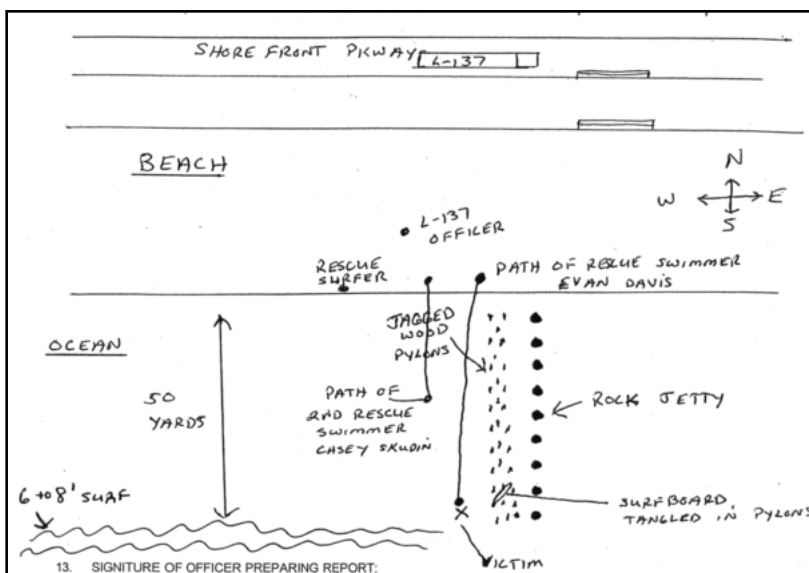 SHORE FRONT PKWAY
L-137
BEACH
N
W
E
S
L-137
OFFICER
RESCUE
SURFER
PATH OF RESCUE SWIMMER
EVAN DAVIS
JAGGED
WOOD
PYLONS
OCEAN
50
YARDS
PATH OF
2ND RESCUE
SWIMMER
CASEY SKUDIN
ROCK JETTY
6 TO 8' SURF
SURFBOARD
TANGLED IN PYLONS
X
VICTIM
13. SIGNITURE OF OFFICER PREPARING REPORT: